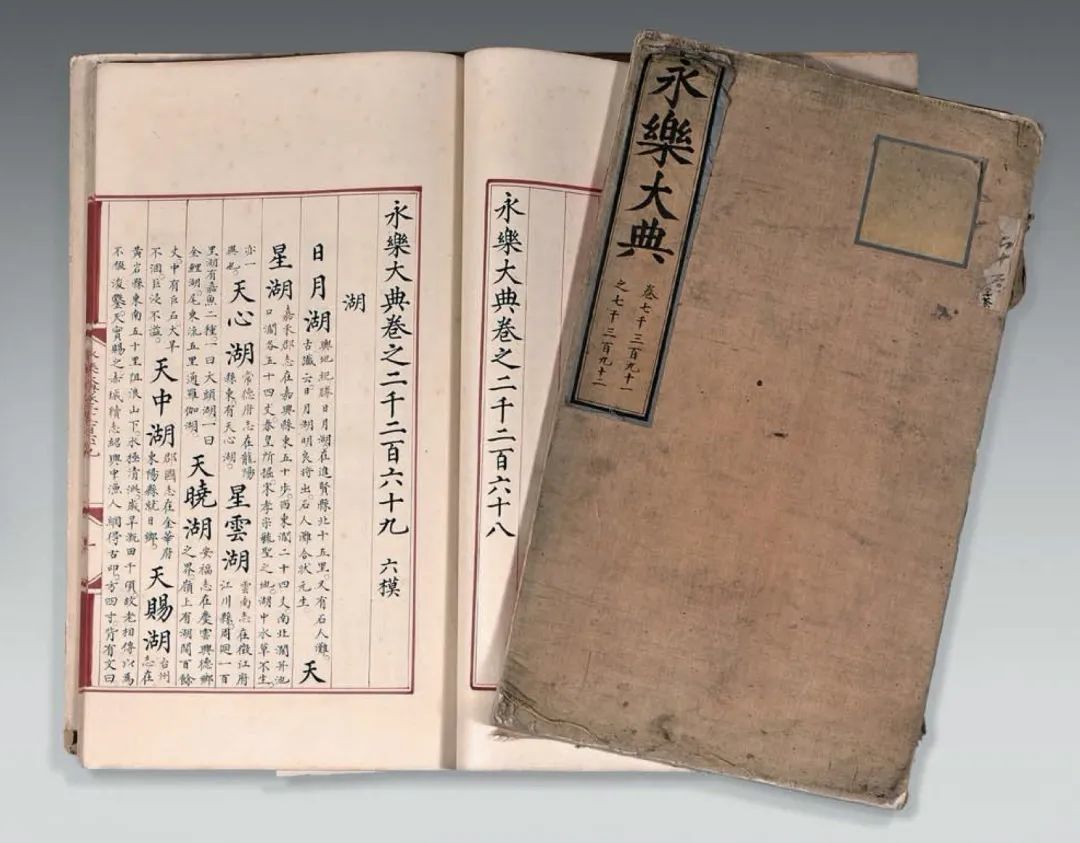 永樂大典
卷七千三百九十一
之七千三百九十二
永樂大典卷之二千二百六十八
永樂大典卷之二千二百六十九 六模
湖
日月湖 輿地紀勝日月湖在進賢縣北十五里。又有石人灘。古讖云日月湖明良將出石人灘合狀元生 天
星湖 嘉禾郡志在嘉興縣東五十步。西東濶二十四丈南北濶并池口濶各五十四丈春皇所掘。宋孝宗毓聖之地。湖中水草不生。
亦一異也。天心湖 常德府志在龍陽縣東有天心湖。 星雲湖 雲南志在徵江府江川縣。周廻一百
里湖有嘉魚二種。一曰大頭湖一曰金鯉湖尾東流五里通羅伽湖。 天曉湖 安福志在慶雲興德鄉之界嶺上有湖闊百餘
丈中有巨石大旱不涸。巨浸不溢。 天中湖 郡國志在金華府東陽縣就日鄉。 天賜湖 台州志在
黃岩縣東南五十里阻浪山下水極清洌歲旱溉田千頃故老相傳以為
不假浚鑿天實賜之赤城續志紹興中漁人網得古印。方四寸。背有文曰